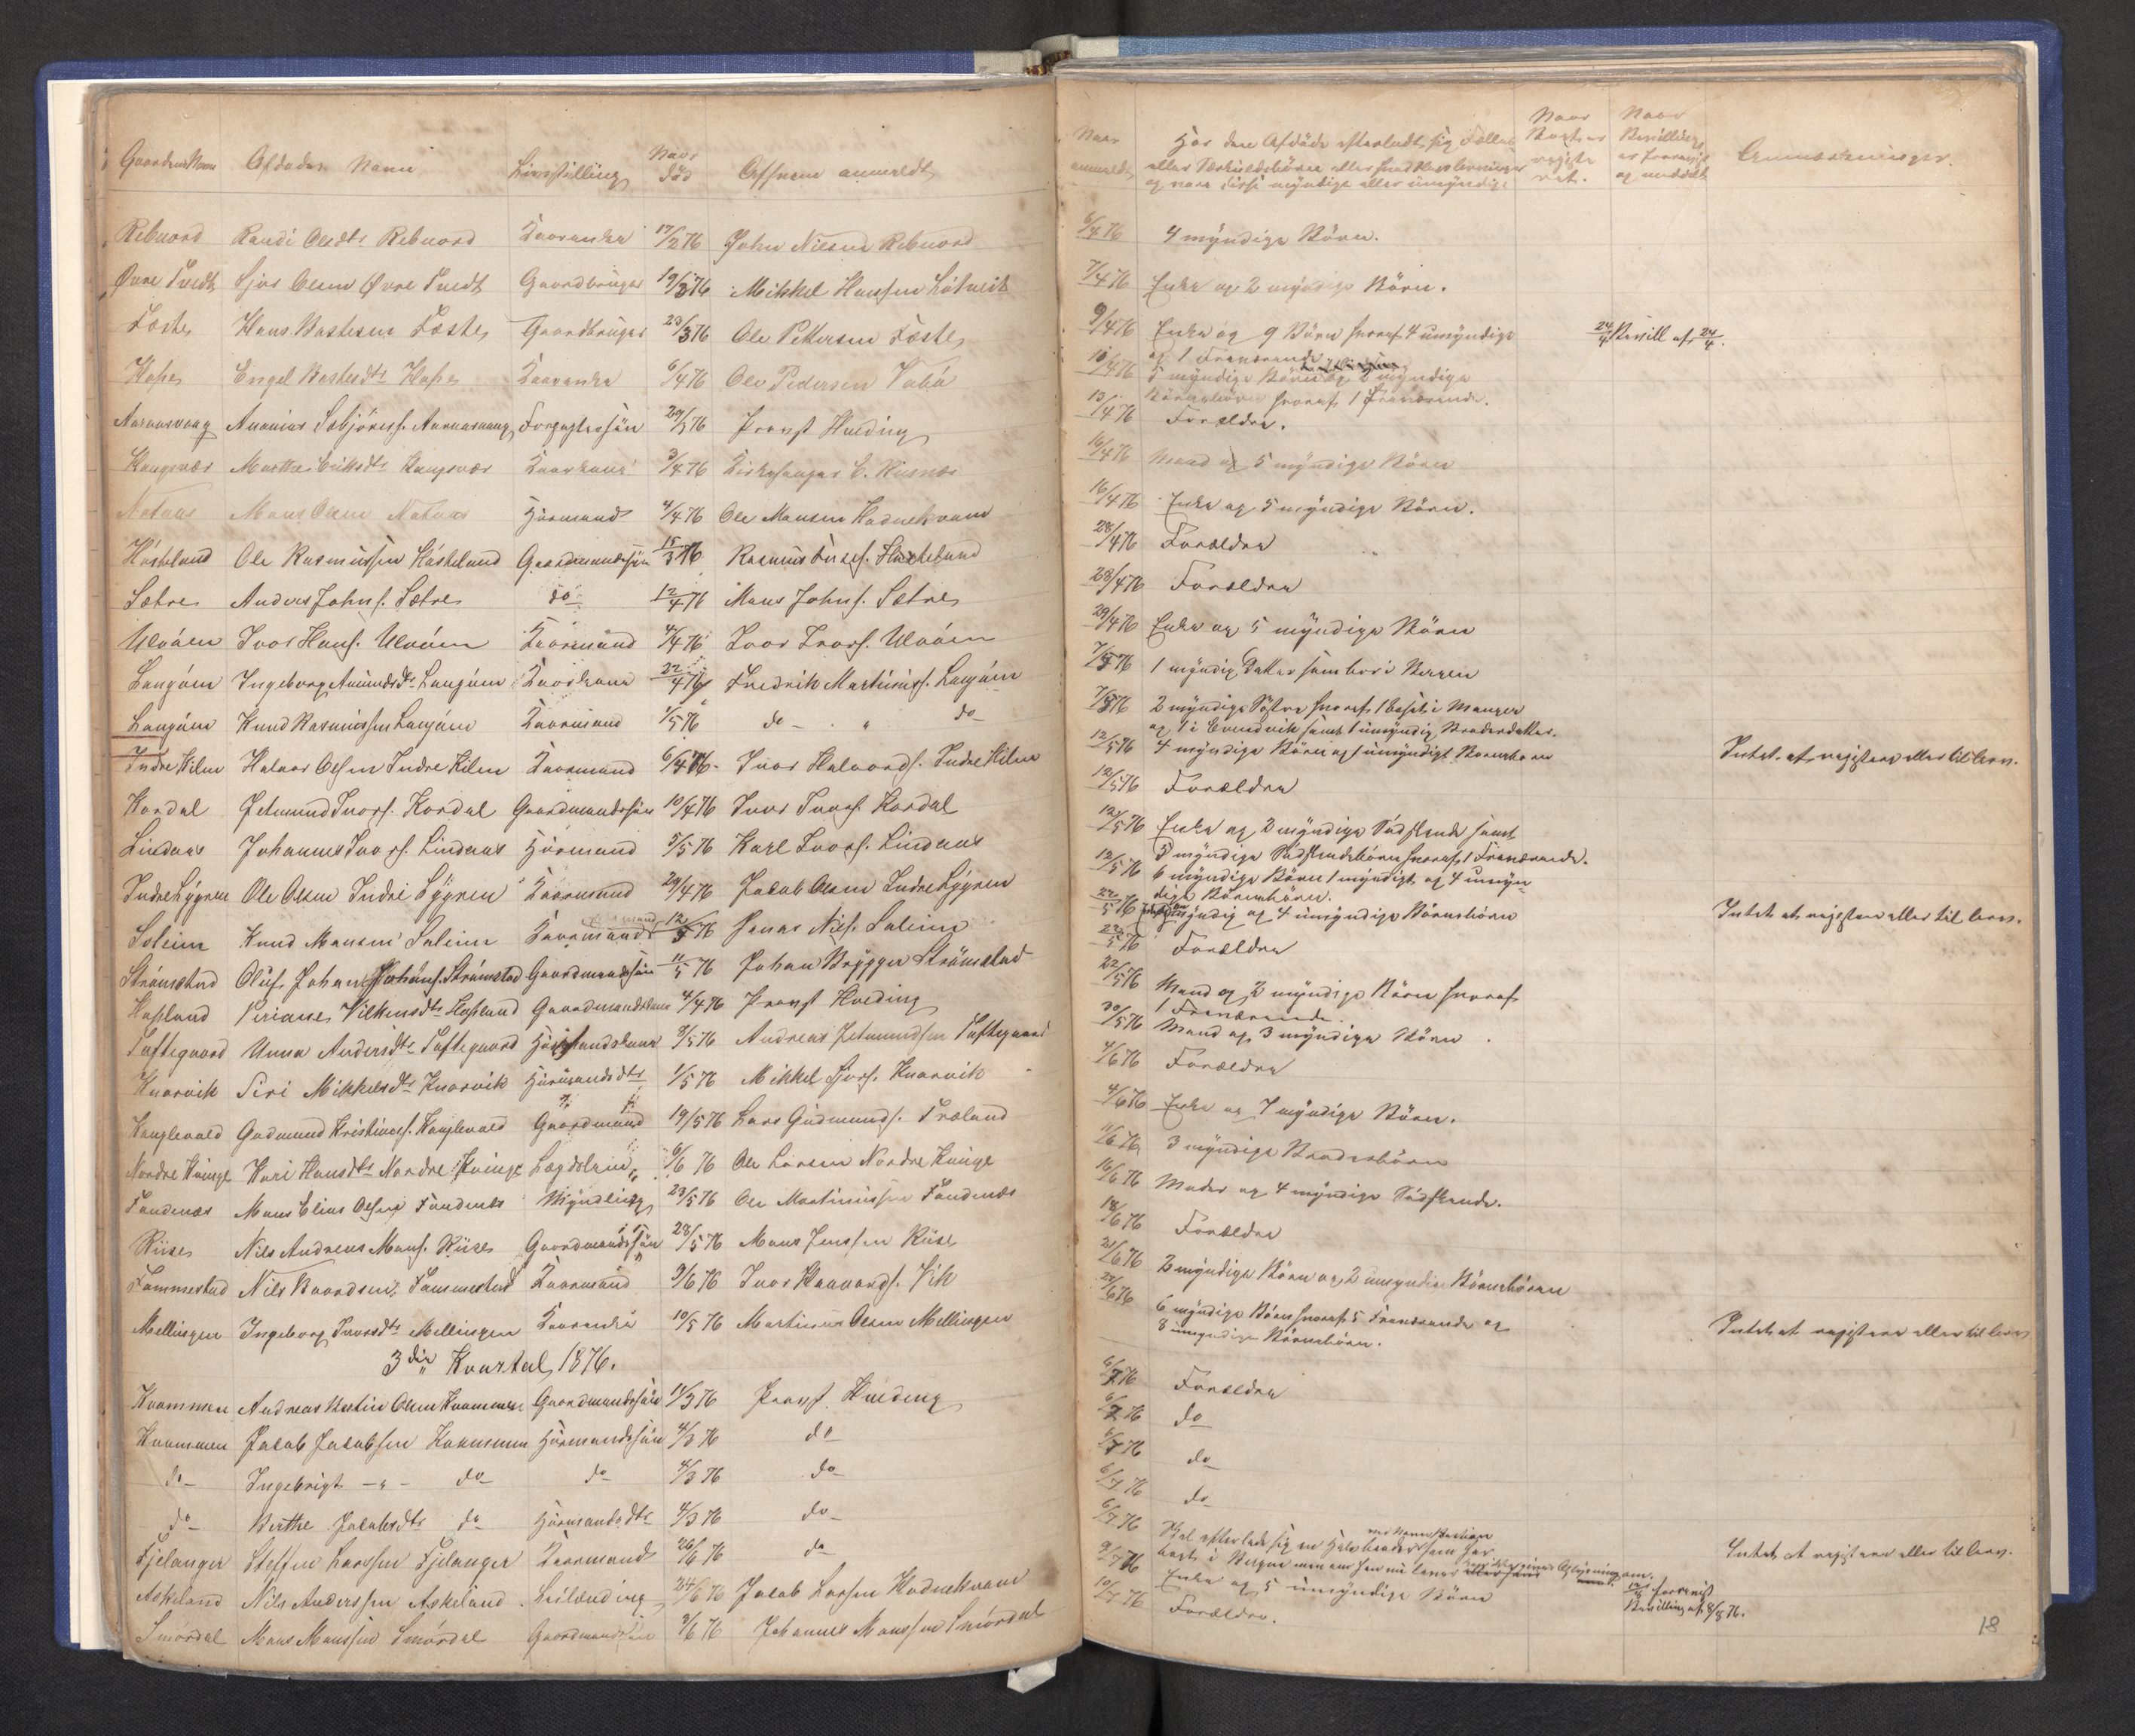 Gaardens Navn Afdødes Navn Livsstilling Naar død Af hvem anmeldt
Rebnord Randi Olsdtr Rebnord Kaarenke 17/2 76 John Nilsen Rebnord
Øvre Tvedt Sjur Olsen Øvre Tvedt Gaardbruger 19/3 76 Mikkel Hansen
Fæste Hans Bastesen Fæste Gaardbruger 23/3 76 Ole Pettersen Fæste
Hope Engel Bastesdtr Hope Kaarenke 6/4 76 Ole Pedersen Vabø
Ananias 29/3 76 Provst Hveding
Marthe Eriksdtr Kaarkone 3/4 76 Kirkesanger E. Risnes
Nataas Mons Olsen Nataas Huusmand 4/4 76 Ole Monsen Hodnekvam
Høsteland Ole Rasmussen Høsteland Gaardmandssøn 15/3 76 Rasmus Høsteland
Sætre Anders Johns. Sætre do 12/4 76 Mons Johns. Sætre
Ulvøen Ivar Hans. Ulvøen Kaarmand 4/4 76 Ivar Ivars. Ulvøen
Langøen Ingeborg Amundsdtr Langøen Kaarkone 22/4 76 Fredrik Martinus. Langøen
Langøen Knud Rasmussen Langøen Kaarmand 1/5 76 do " do
Indre Kilen Halvor Olsen Indre Kilen Kaarmand 6/4 76 Ivar Halvords. Indre Kilen
Kordal Jetmund Ivars. Kordal Gaardmandssøn 10/4 76 Ivar Ivars. Kordal
Lindaas Johannes Ivars. Lindaas Huusmand 5/5 76 Karl Ivars. Lindaas
Indre Lygren Ole Olsen Indre Lygren Kaarmand 29/4 76 Jakob Olsen Indre Lygren
Soleim Knud Monsen Soleim Kaarmand 12/5 76 Jonas Nils. Soleim
Strømstad Oluf Johan Johans. Strømstad Gaardmandssøn 11/5 76 Johan Brygger Strømstad
Hopland Vilhemsdtr Hopland Gaardmandskone 4/4 76 Provst Hveding
Toftegaard Anna Andersdtr Toftegaard Huusmandskone 9/5 76 Andreas Jetmundsen Toftegaard
Knarvik Siri Mikkelsdtr Knarvik Huusmandsdtr 1/5 76 Mikkel Sjurs. Knarvik
Gudmund Kristians. Gaardmand 19/5 76 Lars Gudmunds. Fræland
Nordre Kvinge Kari Hansdtr Nordre Kvinge Lægdslem 6/6 76 Ole Larsen Nordre Kvinge
Fondenæs Mons Elias Olsen Fondenæs Myndling 23/5 76 Ole Martinussen Fondenæs
Riise Nils Andreas Mons. Riise Gaardmandssøn 28/5 76 Mons Jenssen Riise
Fammestad Nils Baardsen Fammestad Kaarmand 9/6 76 Ivar Haavards. Vik
Mellingen Ingeborg Ivarsdtr Mellingen Kaarenke 10/5 76 Martinus Olsen Mellingen
3die Kvartal 1876.
Kvammen Andreas Martin Olsen Kvammen Gaardmandssøn 11/3 76 Provst Hveding
Kvammen Jakob Jakobsen Kvammen Huusmandssøn 4/3 76 do
do Ingebrigt — " — do do 4/3 76 do
do Birthe Jakobsdtr do Huusmandsdtr 4/3 76 do
Fjelanger Steffen Larssen Fjelanger Kaarmand 26/6 76 do
Askeland Nils Anderssen Askeland Leilænding 24/6 76 Jakob Larsen Hodnekvam
Smørdal Mons Monssen Smørdal Gaardmandssøn 3/6 76 Johannes Monssen Smørdal
Naar anmeldt
Har den Afdøde efterladt sig Fælles
eller Særkuldsbørn eller
og vare disse myndige eller umyndige
Naar Boet er registreret.
Naar Bevilling er foreviist og meddelt
Anmærkninger.
6/4 76 4 myndige Børn.
7/4 76 Enke og 2 myndige Børn.
9/4 76 Enke og 9 Børn hvoraf 4 umyndige 24/4 Bevill af 24/4.
og 1 Fraværende
10/4 76 5 myndige Børn og 2 myndige
Børnebørn hvoraf 1 Fraværende.
13/4 76 Forældre.
16/4 76 Mand og 5 myndige Børn
16/4 76 Enke og 5 myndige Børn.
28/4 76 Forældre
28/4 76 Forældre
29/4 76 Enke og 5 myndige Børn
7/5 76 1 myndig Datter som bor i Bergen
7/5 76 2 myndige Søstre hvoraf 1 bosat i Manger
og 1 i Evindvik samt 1 umyndig Broderdatter.
12/5 76 4 myndige Børn og 1 umyndigt Barnebarn Intet at registrere eller til Arv.
12/5 76 Forældre
12/5 76 Enke og 2 myndige Sødskende samt
5 myndige Sødskendebørn hvoraf 1 Fraværende.
12/5 76 6 myndige Børn 1 myndigt og 4 umyn-
dige Børnebørn.
22/5 76 myndig og 4 umyndige Børnebørn Intet at registrere eller til Arv.
22/5 76 Forældre
22/5 76 Mand og 2 myndige Børn hvoraf
1 Fraværende.
30/5 76 Mand og 3 myndige Børn.
4/6 76 Forældre
4/6 76 Enke og 7 myndige Børn.
11/6 76 3 myndige Broderbørn
16/6 76 Moder og 4 myndige Sødskende.
18/6 76 Forældre
21/6 76 2 myndige Børn og 2 umyndige Børnebørn
6 myndige Børn hvoraf 5 Fraværende og
8 umyndige Børnebørn. Intet at registrere eller til Arv.
6/7 76 Forældre
6/7 76 do
6/7 76 do
6/7 76 do
6/7 76 Skal efterlade sig en Halvbroder som har
Intet at registrere eller til Arv.
9/7 76 Enke og 5 umyndige Børn 12/8 foreviist
Bevilling af 8/8 76.
10/7 76 Forældre.
18